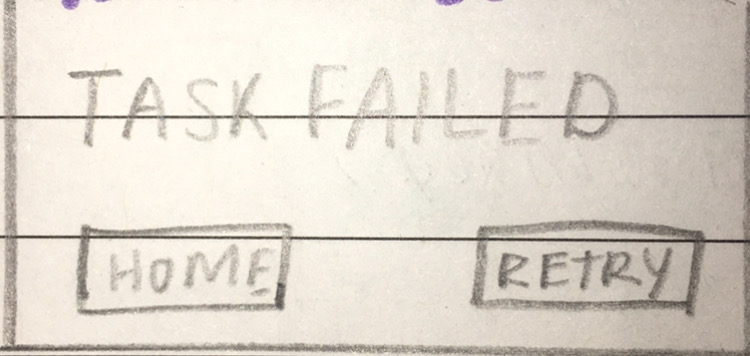 TASK FAILED
HOME RETRY